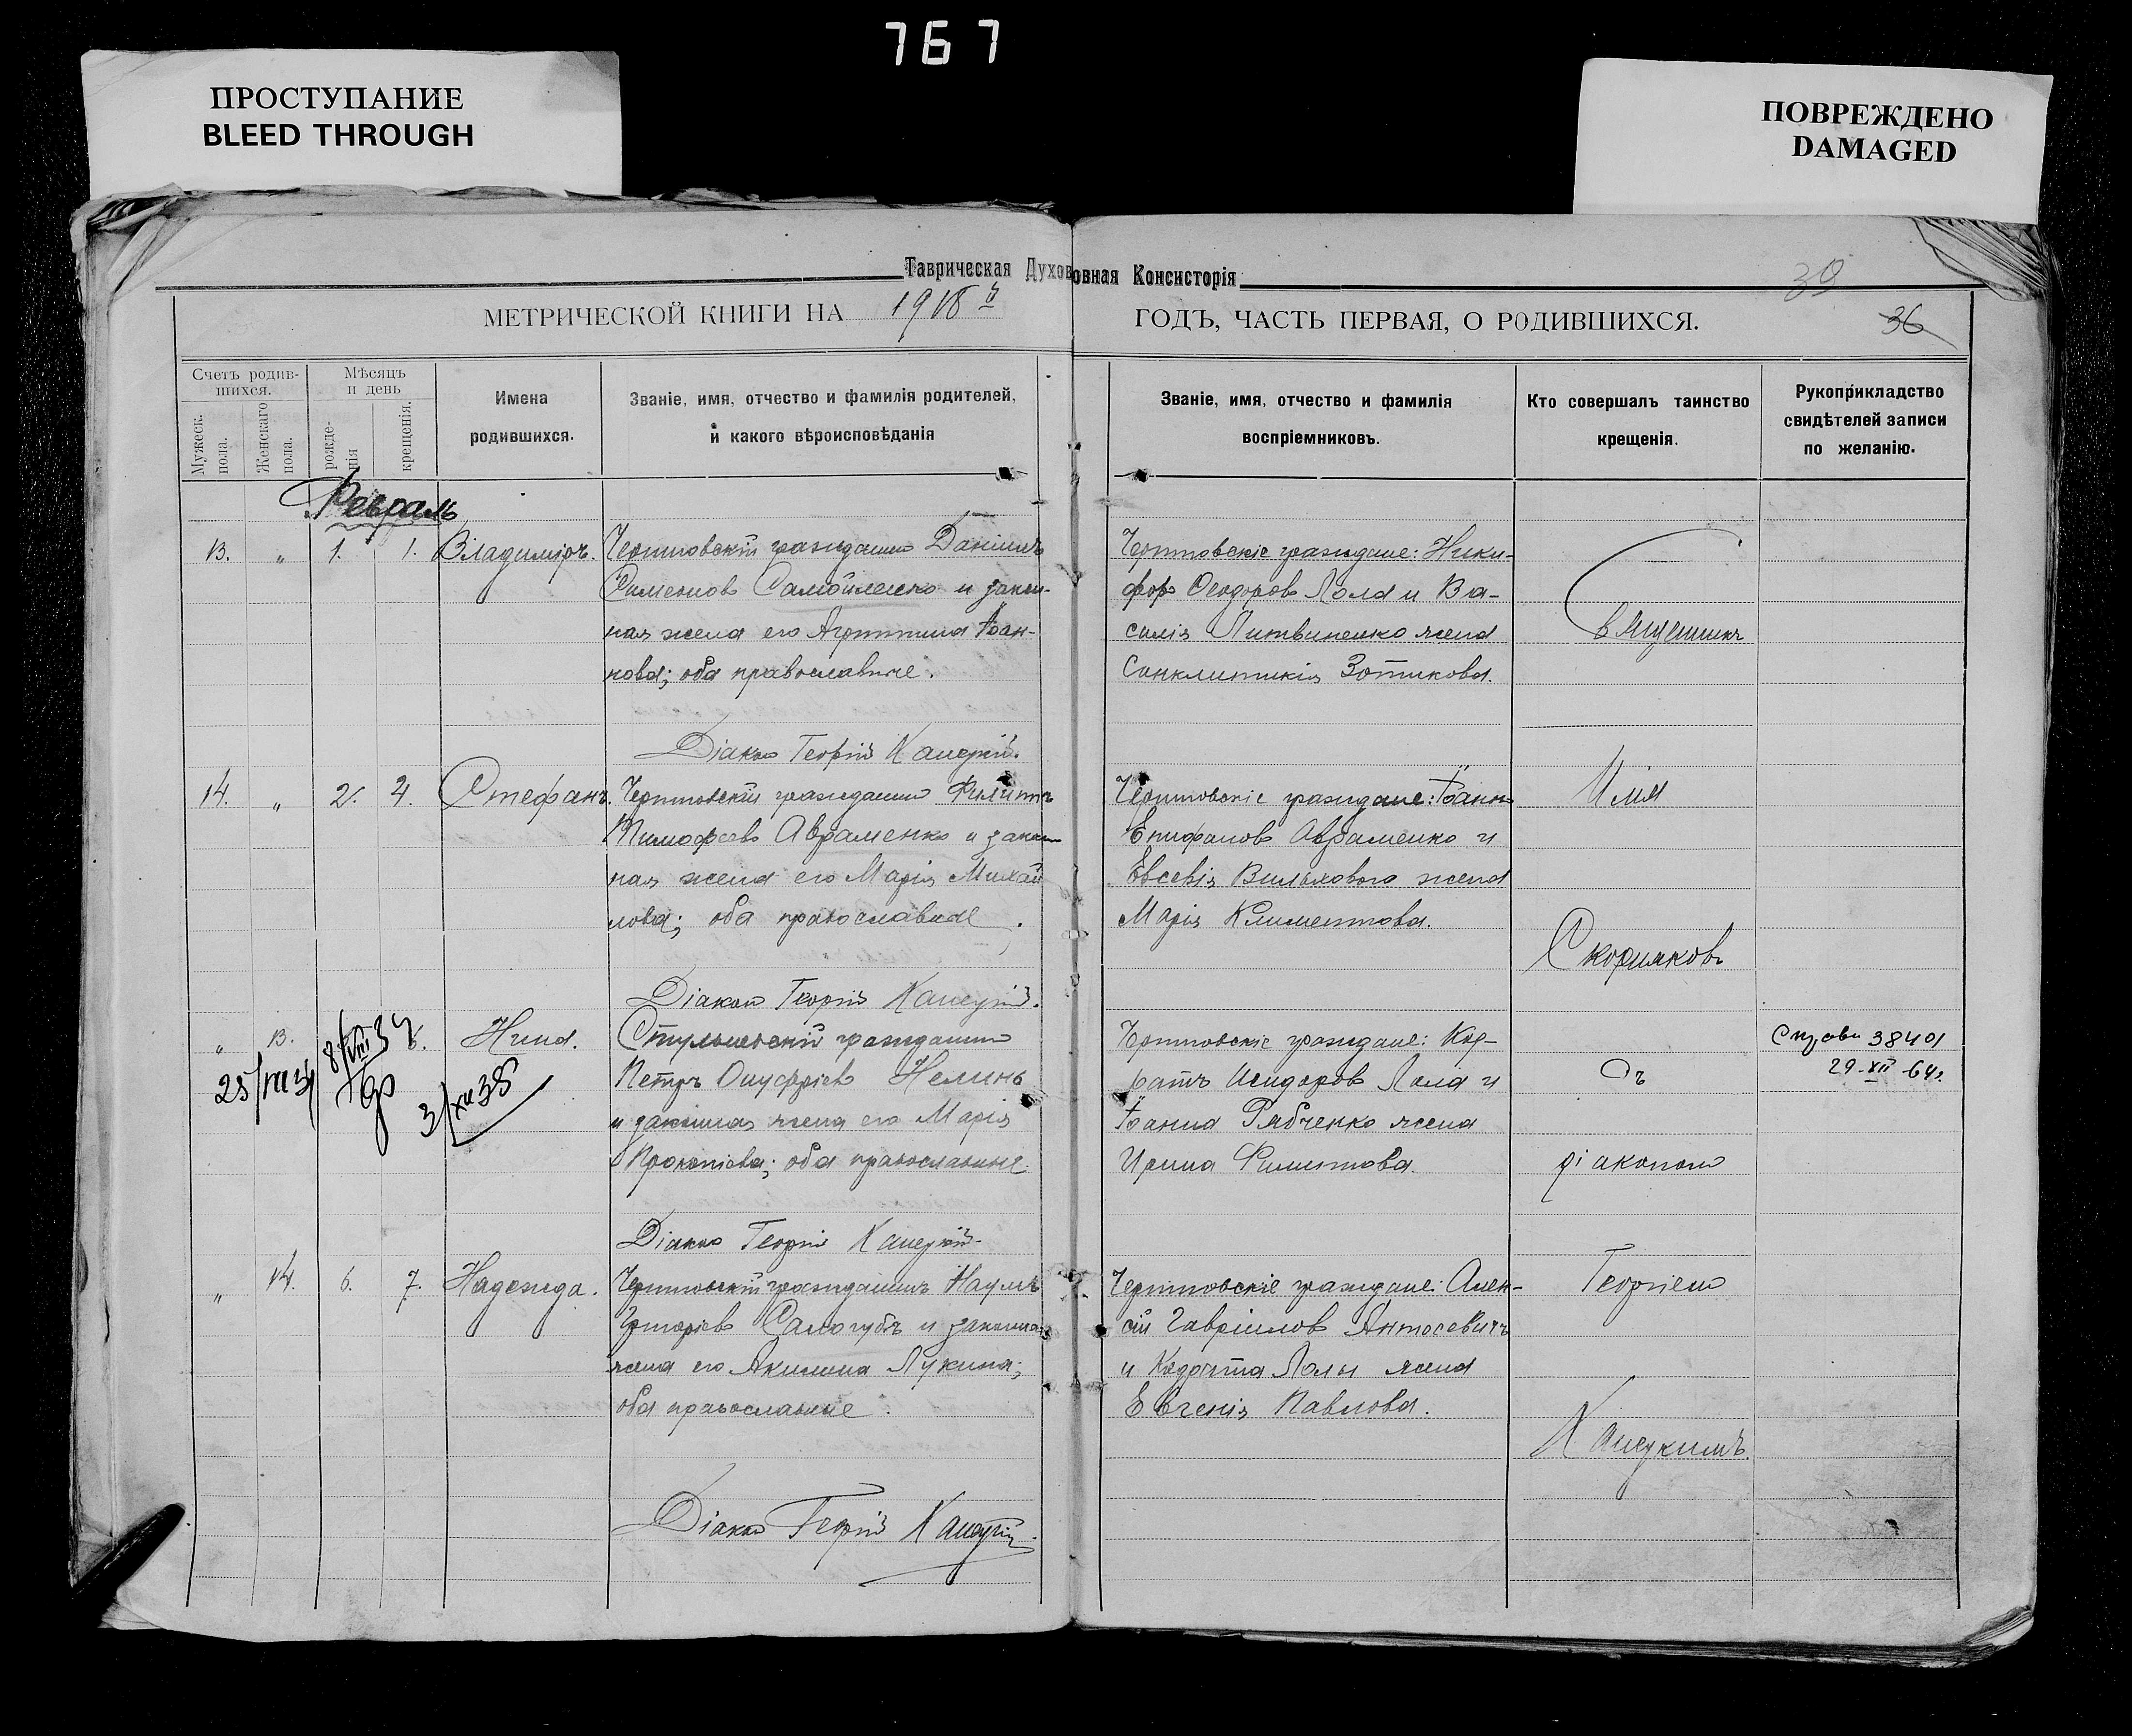 767
ПРОСТУПАНИЕ
BLEED THROUGH
ПОВРЕЖДЕНО
DAMAGED
Таврическая Духовная Консисторія
39
МЕТРИЧЕСКОЙ КНИГИ НА 1918й ГОДЪ, ЧАСТЬ ПЕРВАЯ, О РОДИВШИХСЯ.
36
Счетъ родив-
шихся.
Мужеск. пола.
Женскаго пола.
Мѣсяцъ
и день
рожде-
нія
крещенія.
Имена
родившихся.
Званіе, имя, отчество и фамилія родителей,
и какого вѣроисповѣданія
Званіе, имя, отчество и фамилія
воспріемниковъ.
Кто совершалъ таинство
крещенія.
Рукоприкладство
свидѣтелей записи
по желанію.
Февраль
13. „ 1. 1. Владиміръ.
гражданинъ Даніилъ
Симеонов Самойленко и закон-
ная жена его Агриппина Іоан-
нова; оба православные.
Діакон Георгій
граждане: Ники-
фор Феодоров Лола и Ва-
силія Литвиненко жена
Синклитикія Зотикова.
Священник
14. „ 2. 4. Стефанъ.
гражданин Филиппъ
Тимофеев Авраменко и закон-
ная жена его Марія Михай
лова; оба православные.
Діакон Георгій
граждане: Іоанн
Епифанов Авраменко и
Евсевія Вильхового жена
Марія Климентова.
Илія
Скорняковъ
„ 13. 6. Нина.
гражданин
Петръ Онуфріев Нелинъ
и законная жена его Марія
Прокопіева; оба православные.
Діакон Георгій
граждане: Код-
ратъ Исидоров Лола и
Іоанна Рябченко жена
Ирина Филиппова.
съ
діаконом
38401
29-XII-64г.
3/XII 38
„ 14. 6. 7. Надежда.
гражданинъ Наумъ
Григоріев Самогубъ и законная
жена его Акилина Лукина;
оба православные.
Діакон Георгій
граждане: Алек-
сій Гавріилов Антосевичъ
и Кодрата Лолы жена
Евгенія Павлова.
Георгіем